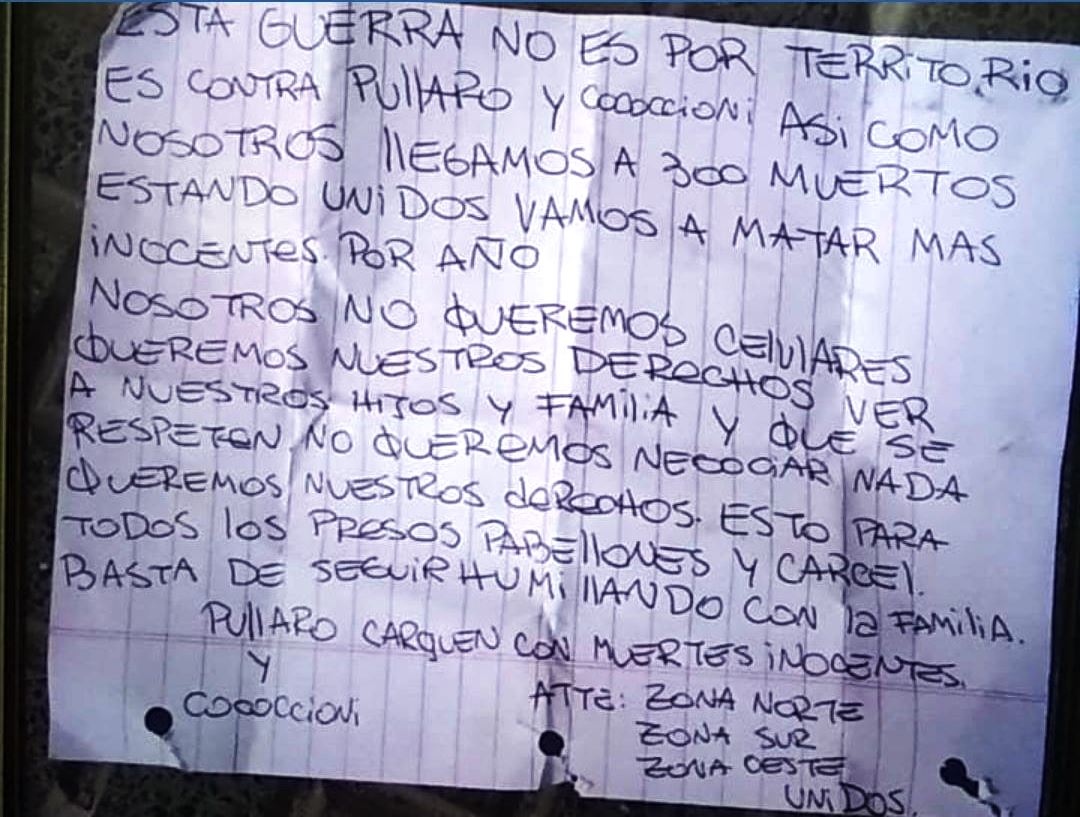 ESTA GUERRA NO ES POR TERRITORIO
ES CONTRA PULLARO Y COCOCCIONI ASI COMO
NOSOTROS LLEGAMOS A 300 MUERTOS
ESTANDO UNIDOS VAMOS A MATAR MAS
INOCENTES. POR AÑO
NOSOTROS NO QUEREMOS CELULARES
QUEREMOS NUESTROS DERECHOS VER
A NUESTROS HIJOS Y FAMILIA Y QUE SE
RESPETEN NO QUEREMOS NECOCIAR NADA
QUEREMOS NUESTROS DERECHOS. ESTO PARA
TODOS LOS PRESOS PABELLONES Y CARCEL.
BASTA DE SEGUIR HUMILLANDO CON LA FAMILIA.
PULLARO CARGUEN CON MUERTES INOCENTES.
Y
COCOCCIONI
ATTE: ZONA NORTE
ZONA SUR
ZONA OESTE
UNIDOS.